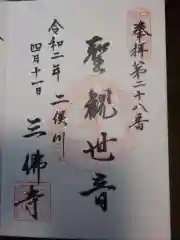 奉拝第二十八番
聖観世音
二俣川
三佛寺
令和二年
四月十一日